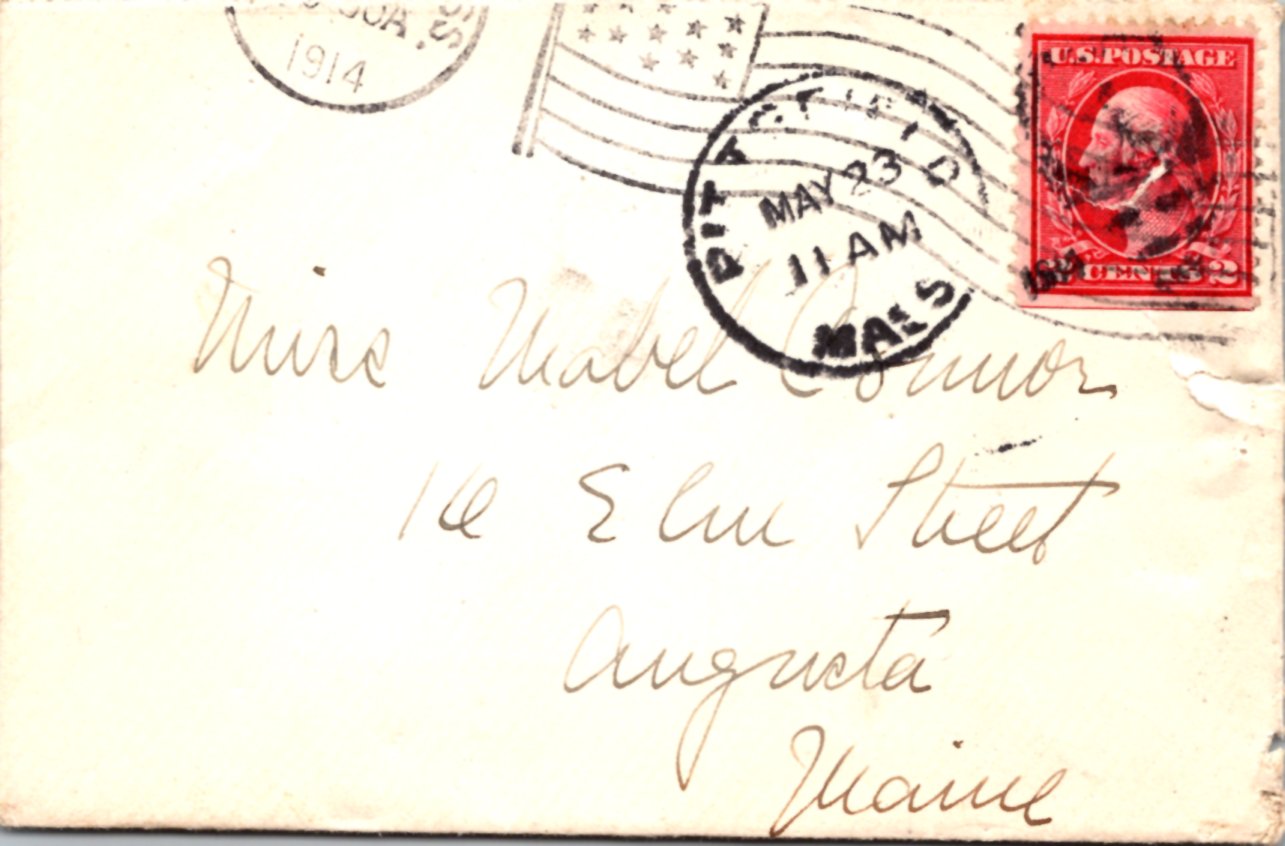 1914
PITTSFIELD
MAY 23
11 AM
MASS
U.S. POSTAGE
2 CENTS 2
Miss Mabel Connor
16 Elm Street
Augusta
Maine